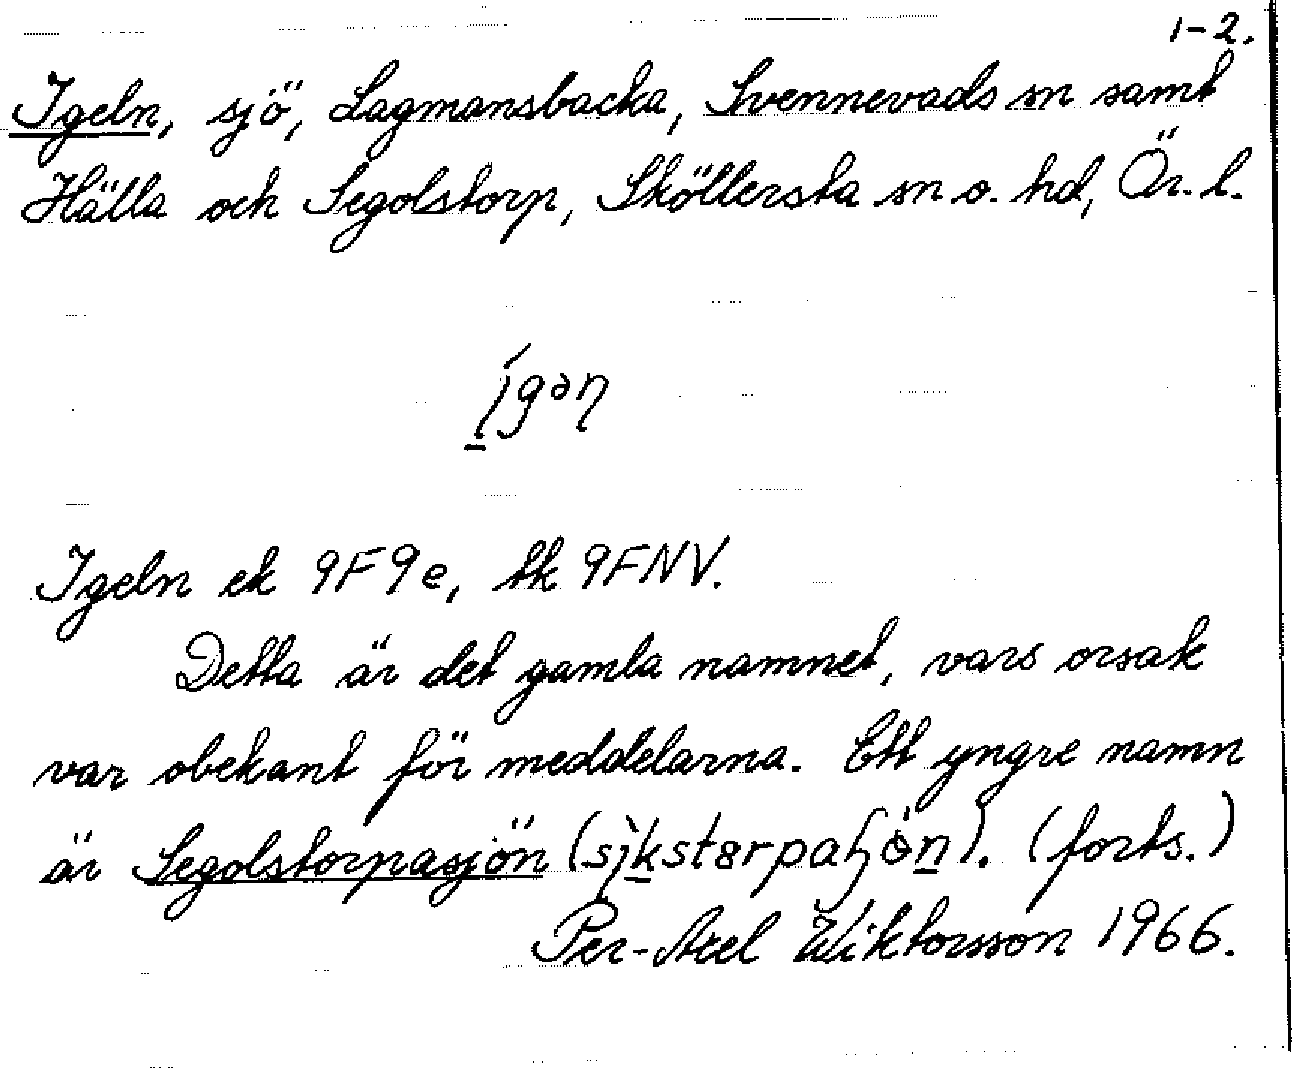 1-2.
Igeln, sjö, Lagmansbacka, Svennevads sn samt
Hälla och Segolstorp, Sköllersta sn o. hd, Ör. l.
ígən
Igeln ek 9F9e, tk 9FNV.
Detta är det gamla namnet, vars orsak
var obekant för meddelarna. Ett yngre namn
är Segolstorpasjön ( ). (forts.)
Per-Axel Wiktorsson 1966.